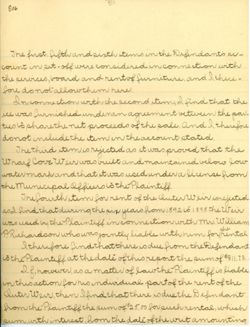 The first, fifth and sixth items in the Defendants ac-
count in set-off were considered in connection with
the services, board and rent of furniture, and I there-
fore do not allow them here.
In connection with the second item, I find that the
was furnished under an agreement between the par-
ties to share the net proceeds of the sale. And I therefore
do not include the item in the account stated.
The third item is rejected as it was proved that the
Cove Weir was built and maintained below low
water mark and that it was used under a license from
the Municipal Officers to the Plaintiff.
The fourth item for rent of the Outer Weir is rejected
as I find that during the years from to 1898 the Weir
was used by the Plaintiff in connection with Mr. William
P. Richardson who was jointly liable with him for rental
I therefore find that there is due from the Defendant
to the Plaintiff at the date of this report the sum of
If, however, as a matter of law the Plaintiff is liable
in this action for his individual part of the rent of the
Outer Weir then I find that there is due the Defendant
from the Plaintiff the sum of for said rental, which
sum with interest, from the date of the writ amounting